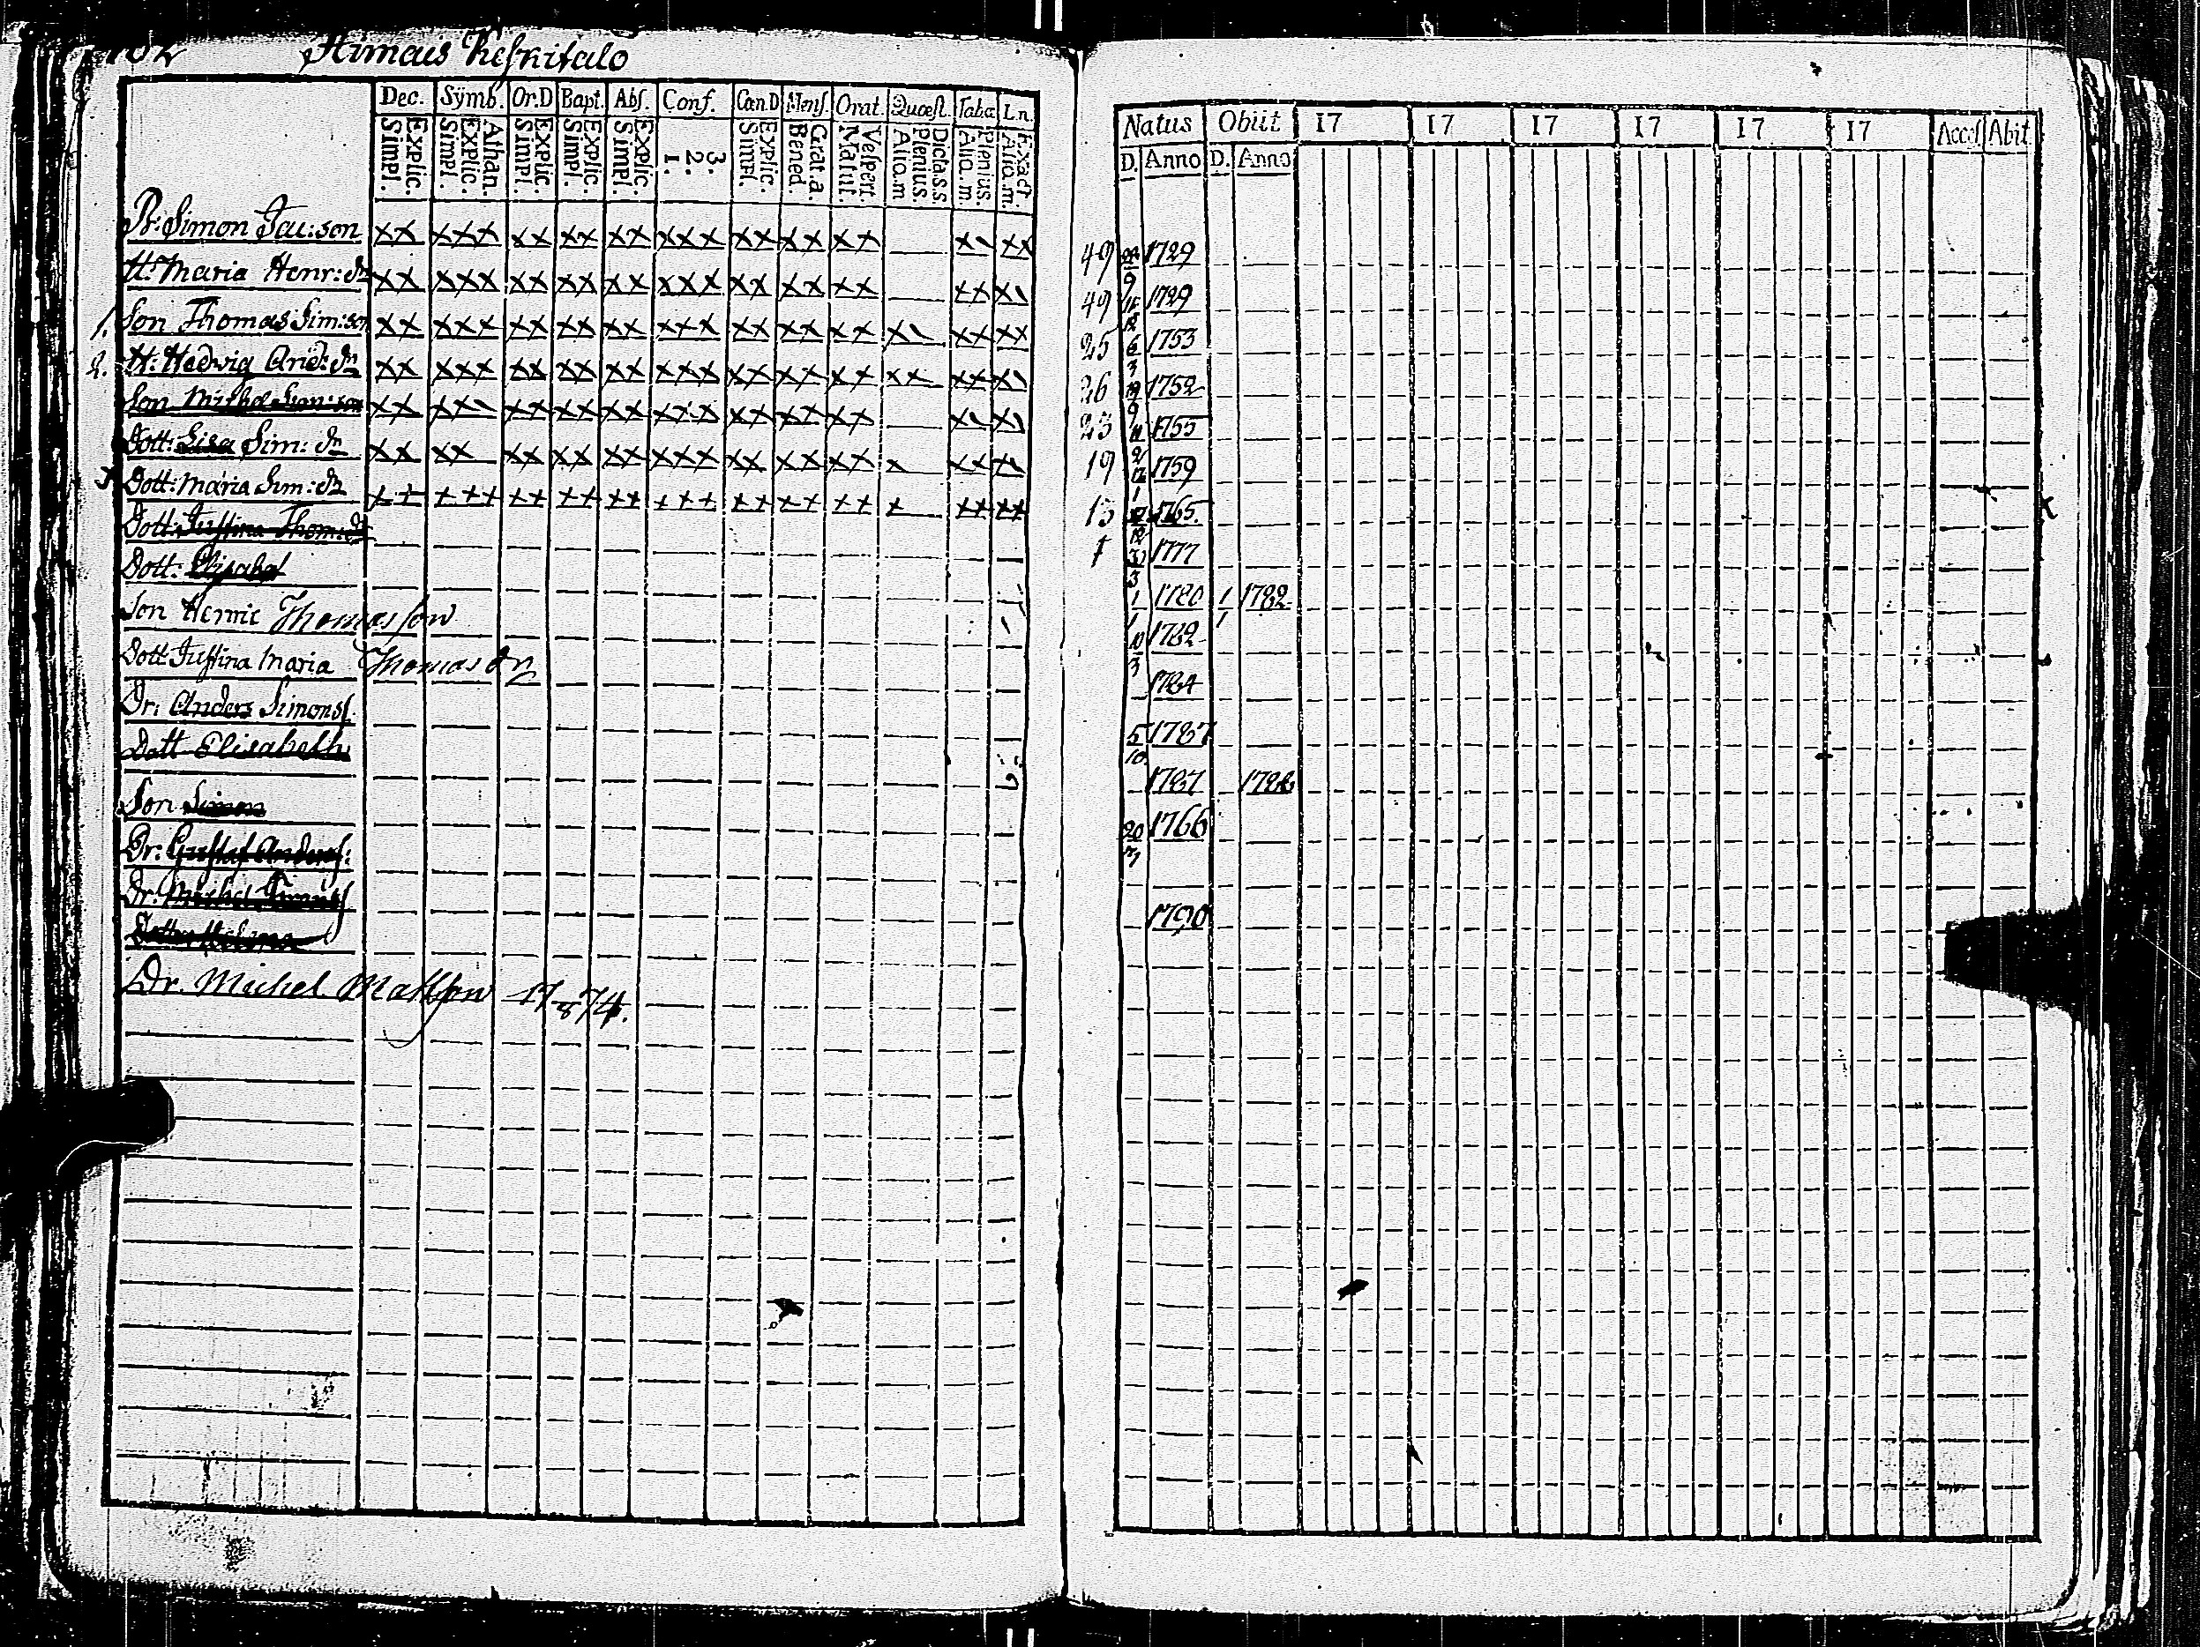 Himais Keskitalo
Dec. Symb. Or.D Bapt. Abs. Conf. Cœn.D Mens. Orat. Quæst. Tabæ L.n.
Explic. Simpl. Athan. Explic. Simpl. Explic. Simpl. Explic. Simpl. Explic. Simpl. 3. 2. 1. Explic. Simpl. Grat.a. Bened. Vespert. Matut. Dict.a s.s. Plenius. Aliq.m Plenius. Aliq.m. Exact. Aliq.m.
B. Simon Jac:son xx xxx xx xx xx xxx xx xx xx xx xx
H. Maria Henr:dr xx xxx xx xx xx xxx xx xx xx xx
1. Son Thomas Sim:son xx xxx xx xx xx xxx xx xx xx xx xx
2. H: Hedwig And:dr xx xxx xx xx xx xxx xx xx xx xx xx
Son Michel Sim:son xx xx xx xx xx xxx xx xx xx
Dott: Lisa Sim:dr xx xx xx xx xx xxx xx xx xx x xx
Dott: Maria Sim:dr xx xxx xx xx xx xxx xx xx xx x xx xx
Dott: Justina Thom:dr
Dott: Elisabet
Son Henric Thomasson
Dott Justina Maria Thomasdr
Dr: Anders Simonss.
Dott Elisabeth
Son Simon
Dr: Gustaf Anderss:
Dr: Michel
Dr. Michel Matsson 17 8/74.
Natus Obiit 17 17 17 17 17 17 Acces Abit
D. Anno D. Anno
49 1729
49 1729
25 1753
26 1752
23 1755
19 1759
13 1765.
1 1777
1 1780 1/1 1782
10/3 1782
1784
5/10 1787
1787 1788
20/7 1766
1790